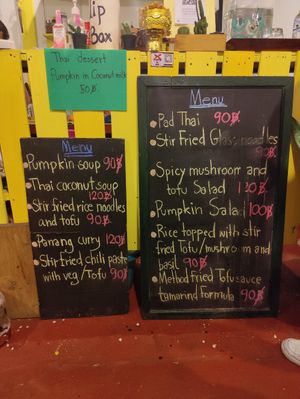 Tip
Box
Thai dessert
Pumpkin in Coconut milk
50฿.
Menu
Pumpkin soup 90฿
Thai coconut soup
120฿
Stir fried rice noodles
and tofu 90฿
Panang curry 120฿
Stir fried chili paste
with veg/Tofu 90฿
Menu
Pad Thai 90฿
Stir Fried Glass noodles
90฿
Spicy mushroom and
tofu Salad 120฿
Pumpkin Salad 100฿
Rice topped with stir
fried Tofu/mushroom and
basil 90฿
Method fried Tofu sauce
tamarind formula 90฿